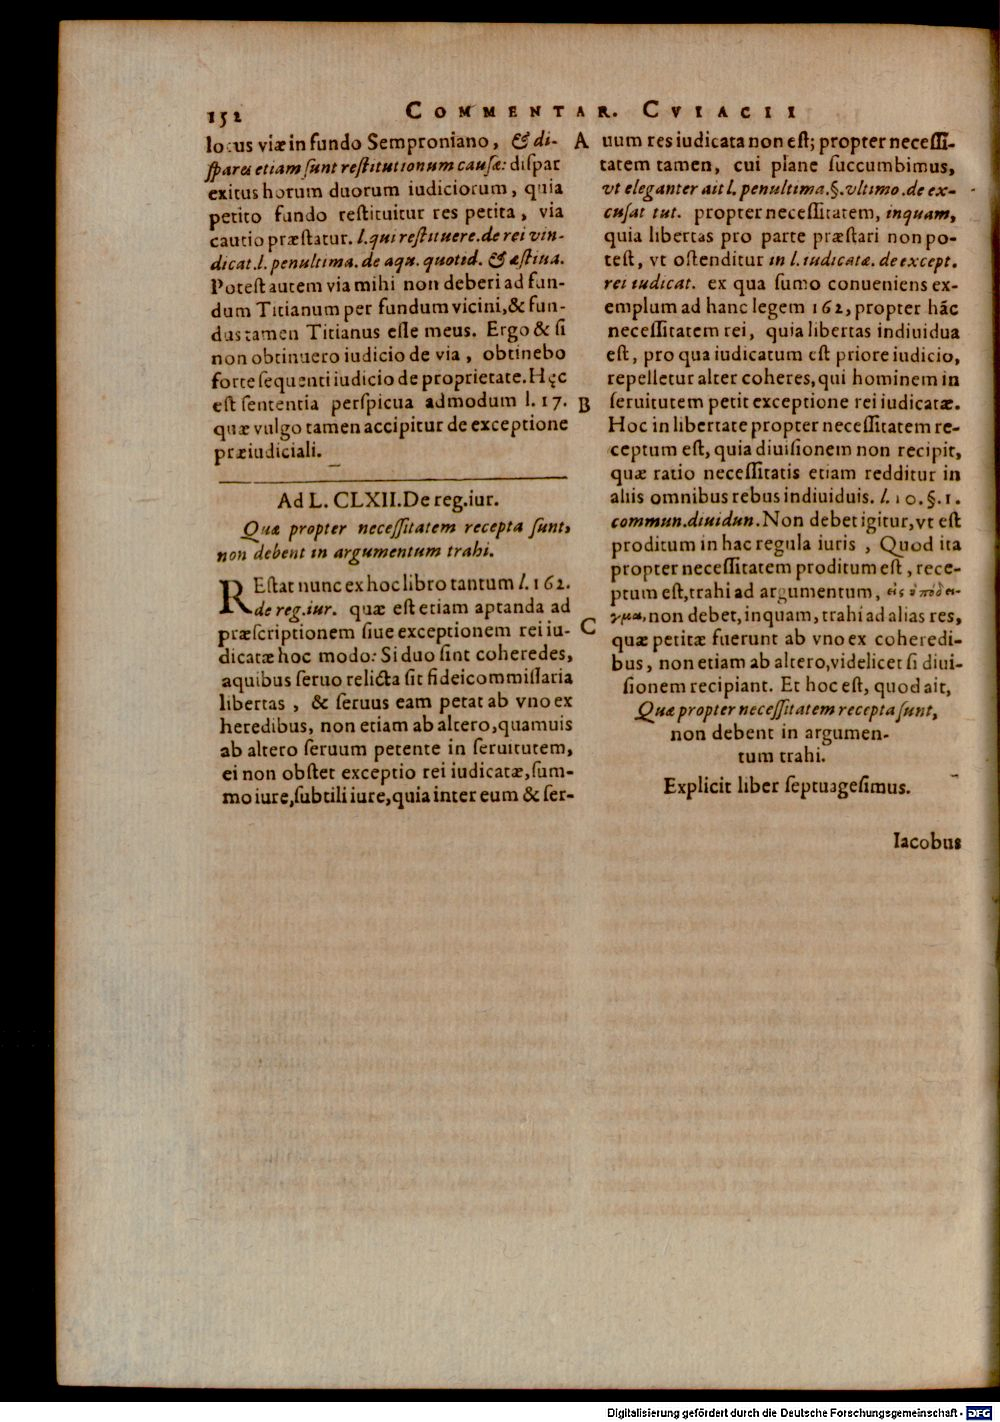 152
COMMENTAR. CVIACII
locus viæ in fundo Semproniano, & di-
ſparēs etiam ſunt reſtitutionum cauſæ: diſpar
exitus horum duorum iudiciorum, quia
petito fundo reſtituitur res petita, via
cautio præſtatur. l. qui reſtituere. de rei vin-
dicat. l. penultima. de aqu. quotid. & æſtiua.
Poteſt autem via mihi non deberi ad fun-
dum Titianum per fundum vicini, & fun-
dus tamen Titianus eſſe meus. Ergo & ſi
non obtinuero iudicio de via, obtinebo
forte ſequenti iudicio de proprietate. Hęc
eſt ſententia perſpicua admodum l. 17.
quæ vulgo tamen accipitur de exceptione
præiudiciali.
Ad L. CLXII. De reg. iur.
Quæ propter neceſſitatem recepta ſunt,
non debent in argumentum trahi.
REſtat nunc ex hoc libro tantum l. 162.
de reg. iur. quæ eſt etiam aptanda ad
præſcriptionem ſiue exceptionem rei iu-
dicatæ hoc modo: Si duo ſint coheredes,
a quibus ſeruo relicta ſit fideicommiſſaria
libertas, & ſeruus eam petat ab vno ex
heredibus, non etiam ab altero, quamuis
ab altero ſeruum petente in ſeruitutem,
ei non obſtet exceptio rei iudicatæ, ſum-
mo iure, ſubtili iure, quia inter eum & ſer-
A
B
C
uum res iudicata non eſt; propter neceſſi-
tatem tamen, cui plane ſuccumbimus,
vt eleganter ait l. penultima. §. vltimo. de ex-
cuſat tut. propter neceſſitatem, inquam,
quia libertas pro parte præſtari non po-
teſt, vt oſtenditur in l. iudicatæ. de except.
rei iudicat. ex qua ſumo conueniens ex-
emplum ad hanc legem 162, propter hãc
neceſſitatem rei, quia libertas indiuidua
eſt, pro qua iudicatum eſt priore iudicio,
repelletur alter coheres, qui hominem in
ſeruitutem petit exceptione rei iudicatæ.
Hoc in libertate propter neceſſitatem re-
ceptum eſt, quia diuiſionem non recipit,
quæ ratio neceſſitatis etiam redditur in
aliis omnibus rebus indiuiduis. l. 10. §. 1.
commun. diuidun. Non debet igitur, vt eſt
proditum in hac regula iuris, Quod ita
propter neceſſitatem proditum eſt, rece-
ptum eſt, trahi ad argumentum, εἰς ὑπόδει-
γμα, non debet, inquam, trahi ad alias res,
quæ petitæ fuerunt ab vno ex coheredi-
bus, non etiam ab altero, videlicet ſi diui-
ſionem recipiant. Et hoc eſt, quod ait,
Quæ propter neceſſitatem recepta ſunt,
non debent in argumen-
tum trahi.
Explicit liber ſeptuageſimus.
Iacobus
Digitalisierung gefördert durch die Deutsche Forschungsgemeinschaft - DFG